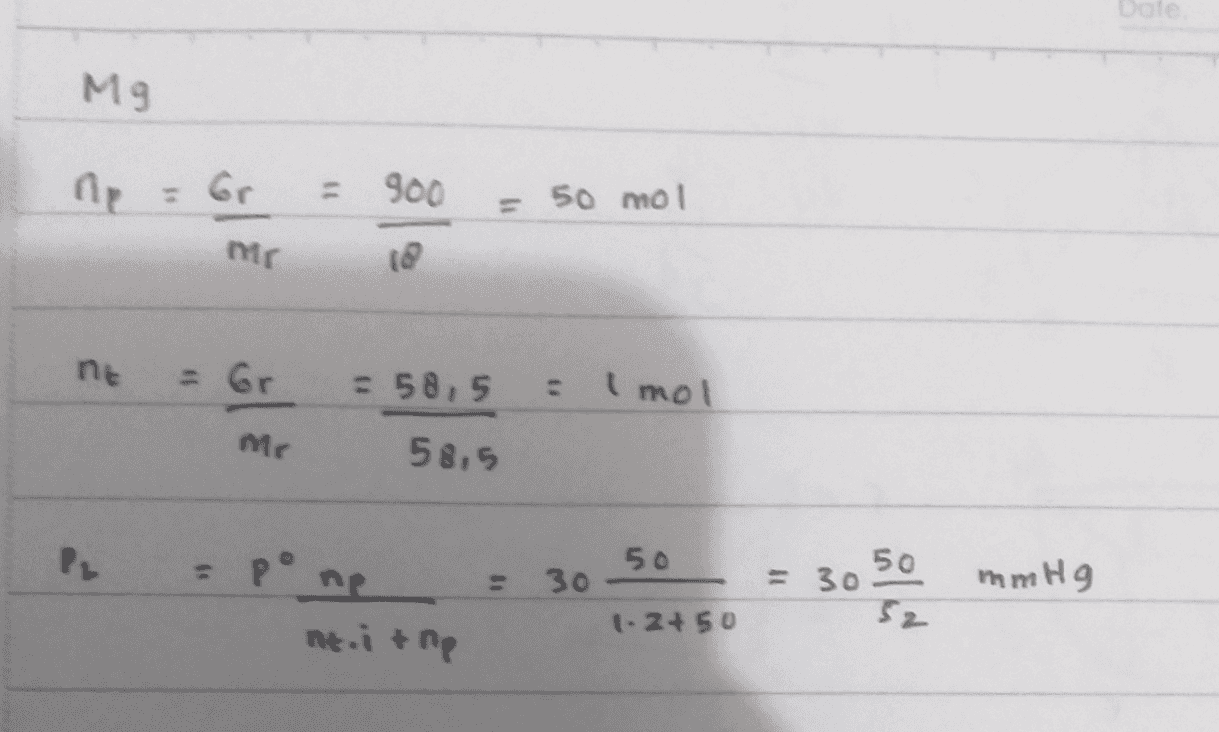 Date.
Mg
np = Gr/mr = 900/18 = 50 mol
nt = Gr/Mr = 58,5/58,5 = 1 mol
P2 = P° np/nt.i + np = 30 50/1.2+50 = 30 50/52 mmHg